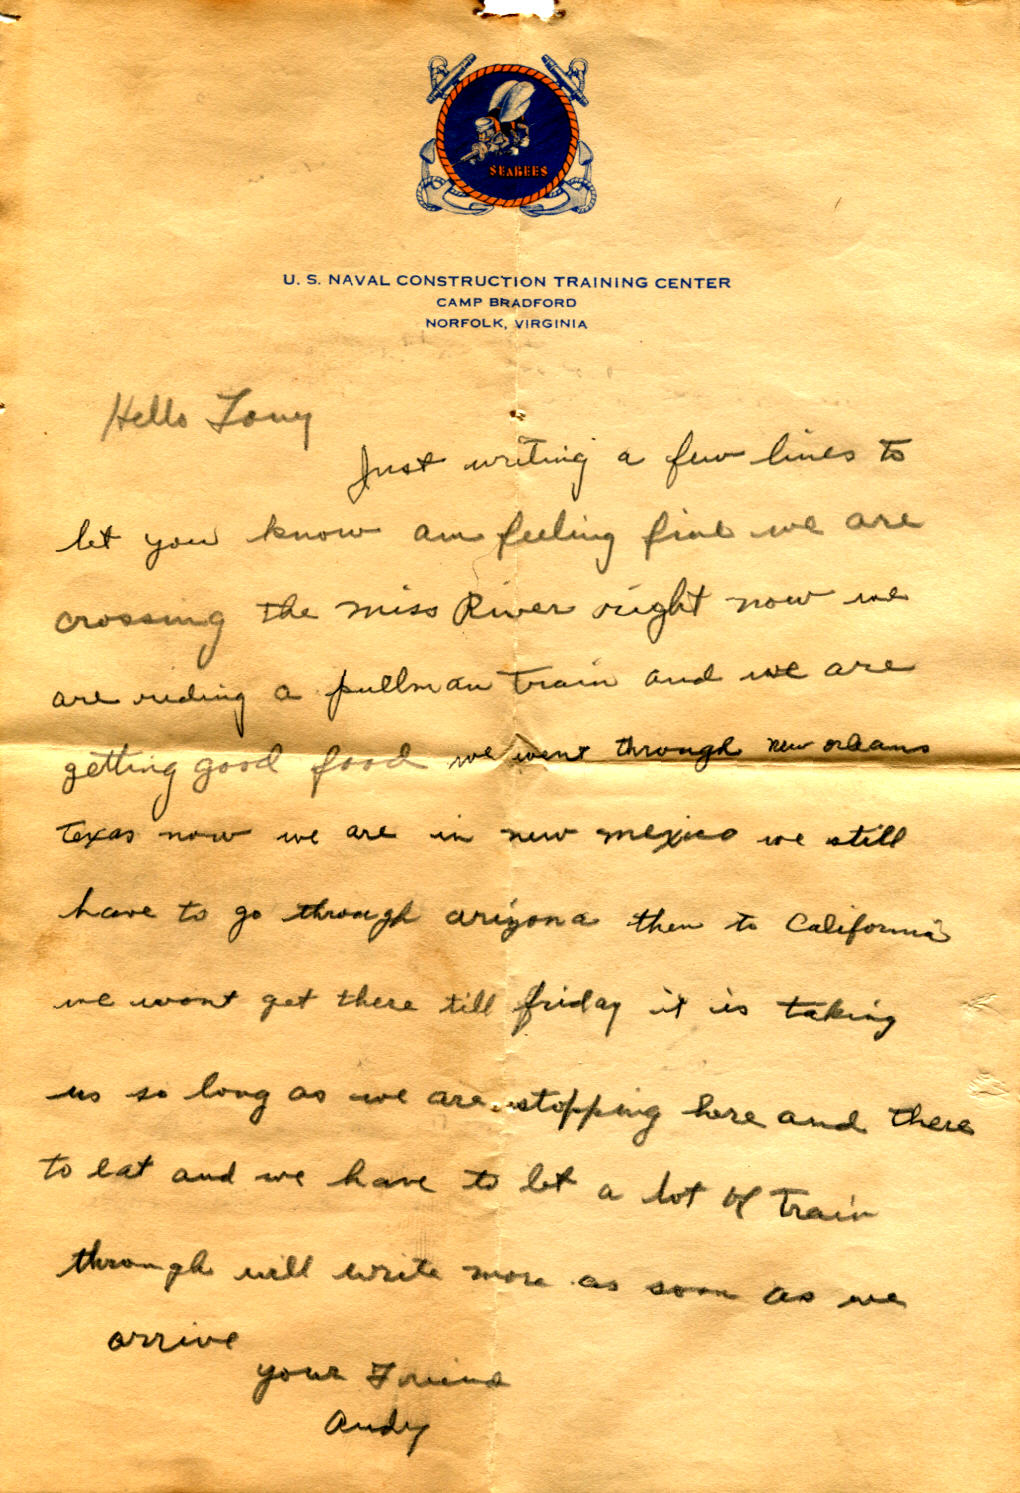 SEABEES
U. S. NAVAL CONSTRUCTION TRAINING CENTER
CAMP BRADFORD
NORFOLK, VIRGINIA
Hello Tony
Just writing a few lines to
let you know am feeling fine we are
crossing the miss River right now we
are riding a pullman train and we are
getting good food we went through new orleans
Texas now we are in new mexico we still
have to go through arizona then to California
we wont get there till friday it is taking
us so long as we are stopping here and there
to eat and we have to let a lot of train
through will write more as soon as we
arrive
your Friend
Andy